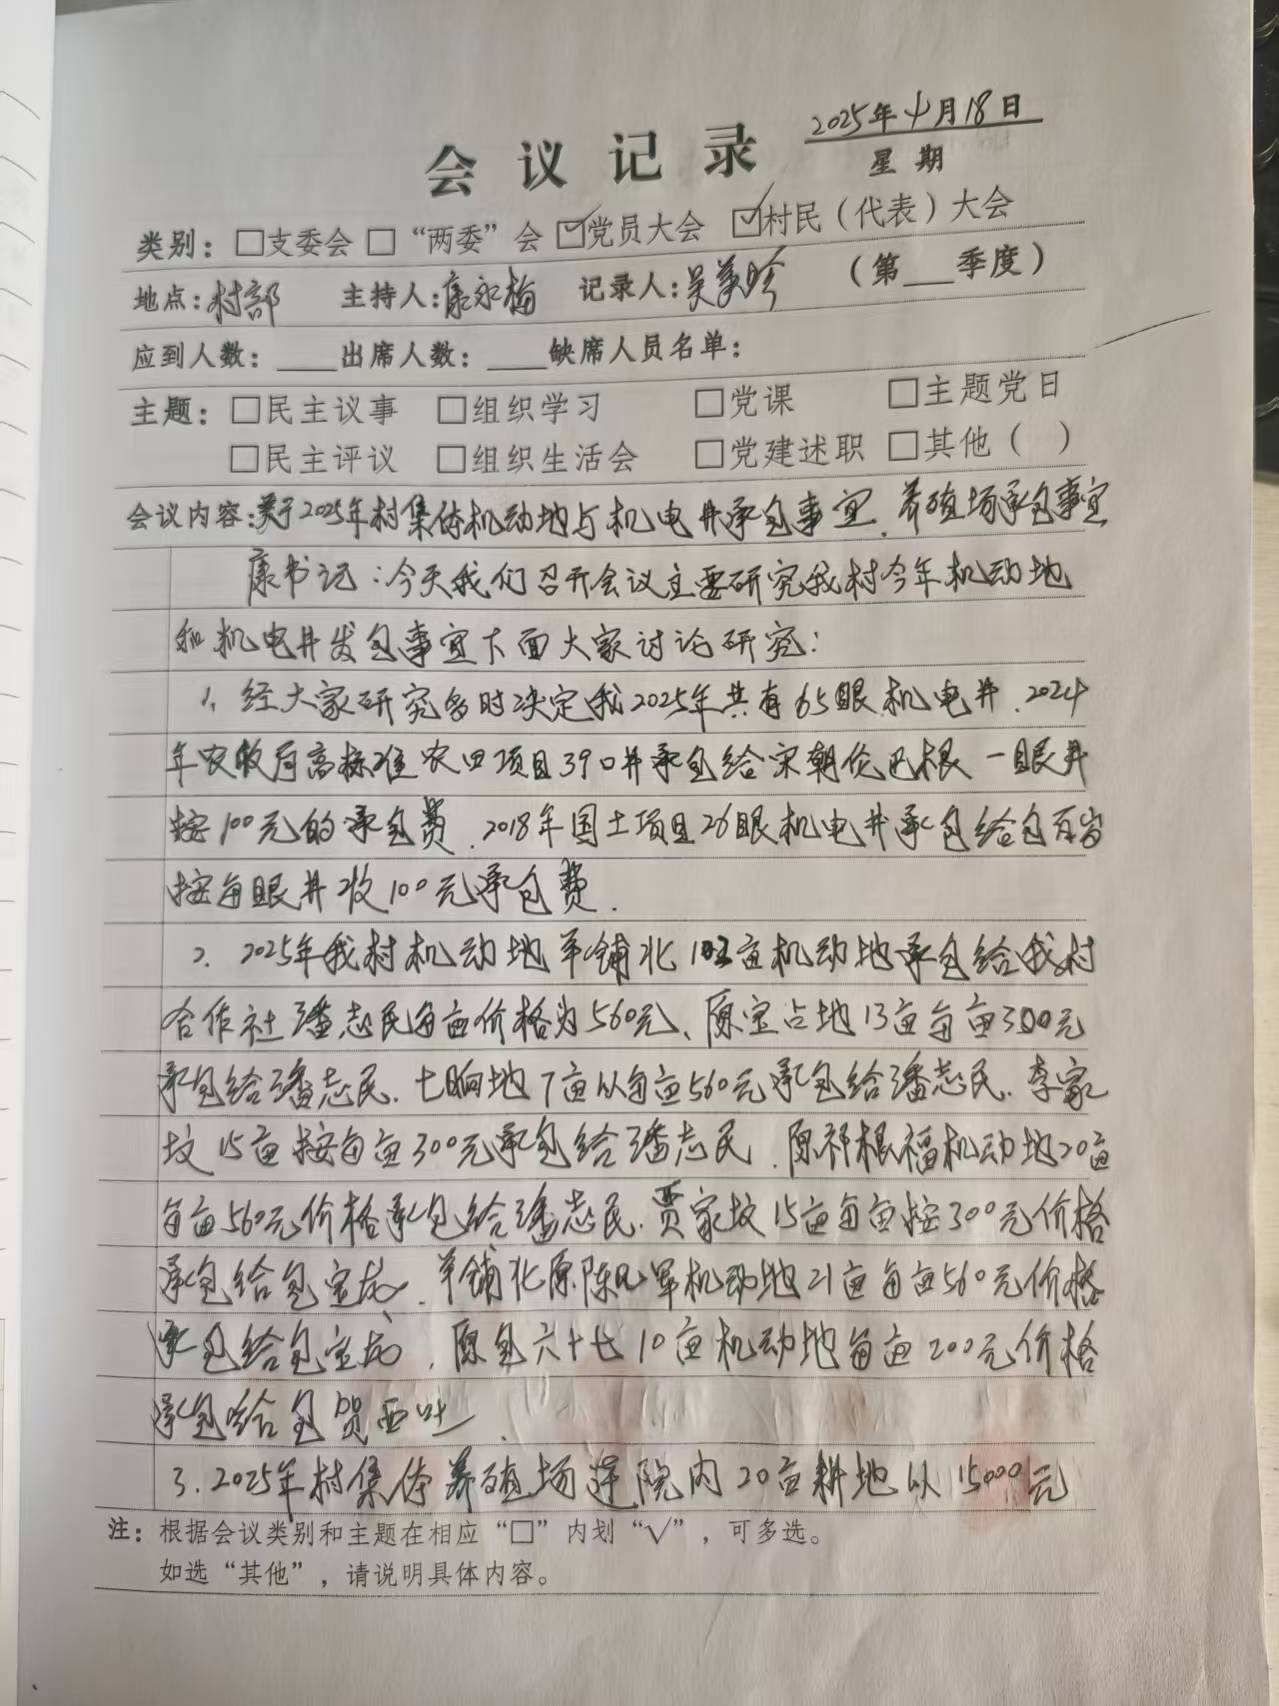 2025年4月18日
会议记录
星期
类别：□支委会 □“两委”会 ☑党员大会 ☑村民（代表）大会
地点：村部 主持人：康永梅 记录人：吴美珍 （第___季度）
应到人数：____出席人数：____缺席人员名单：
主题：□民主议事 □组织学习 □党课 □主题党日
□民主评议 □组织生活会 □党建述职 □其他（ ）
会议内容：关于2025年村集体机动地与机电井承包事宜、养殖场承包事宜
康书记：今天我们召开会议主要研究我村今年机动地
和机电井发包事宜下面大家讨论研究：
1、经大家研究多时决定我2025年共有65眼机电井、2024
年农牧局高标准农田项目39口井承包给宋朝伦巴根一眼井
按100元的承包费、2018年国土项目26眼机电井承包给包百岁
按每眼井收100元承包费.
2、2025年我村机动地羊铺北 亩机动地承包给我村
合作社潘志民每亩价格为560元、原宝占地13亩每亩300元
承包给潘志民、七晌地7亩以每亩560元承包给潘志民、李家
坟15亩按每亩300元承包给潘志民、原祁根福机动地20亩
每亩560元价格承包给潘志民、贾家坟15亩每亩按300元价格
承包给包宝龙、羊铺北原陈凤军机动地21亩每亩560元价格
承包给包宝龙、原包六十七10亩机动地每亩200元价格
承包给包贺西吐.
3、2025年村集体养殖场连院内20亩耕地以15000元
注：根据会议类别和主题在相应“□”内划“√”，可多选。
如选“其他”，请说明具体内容。